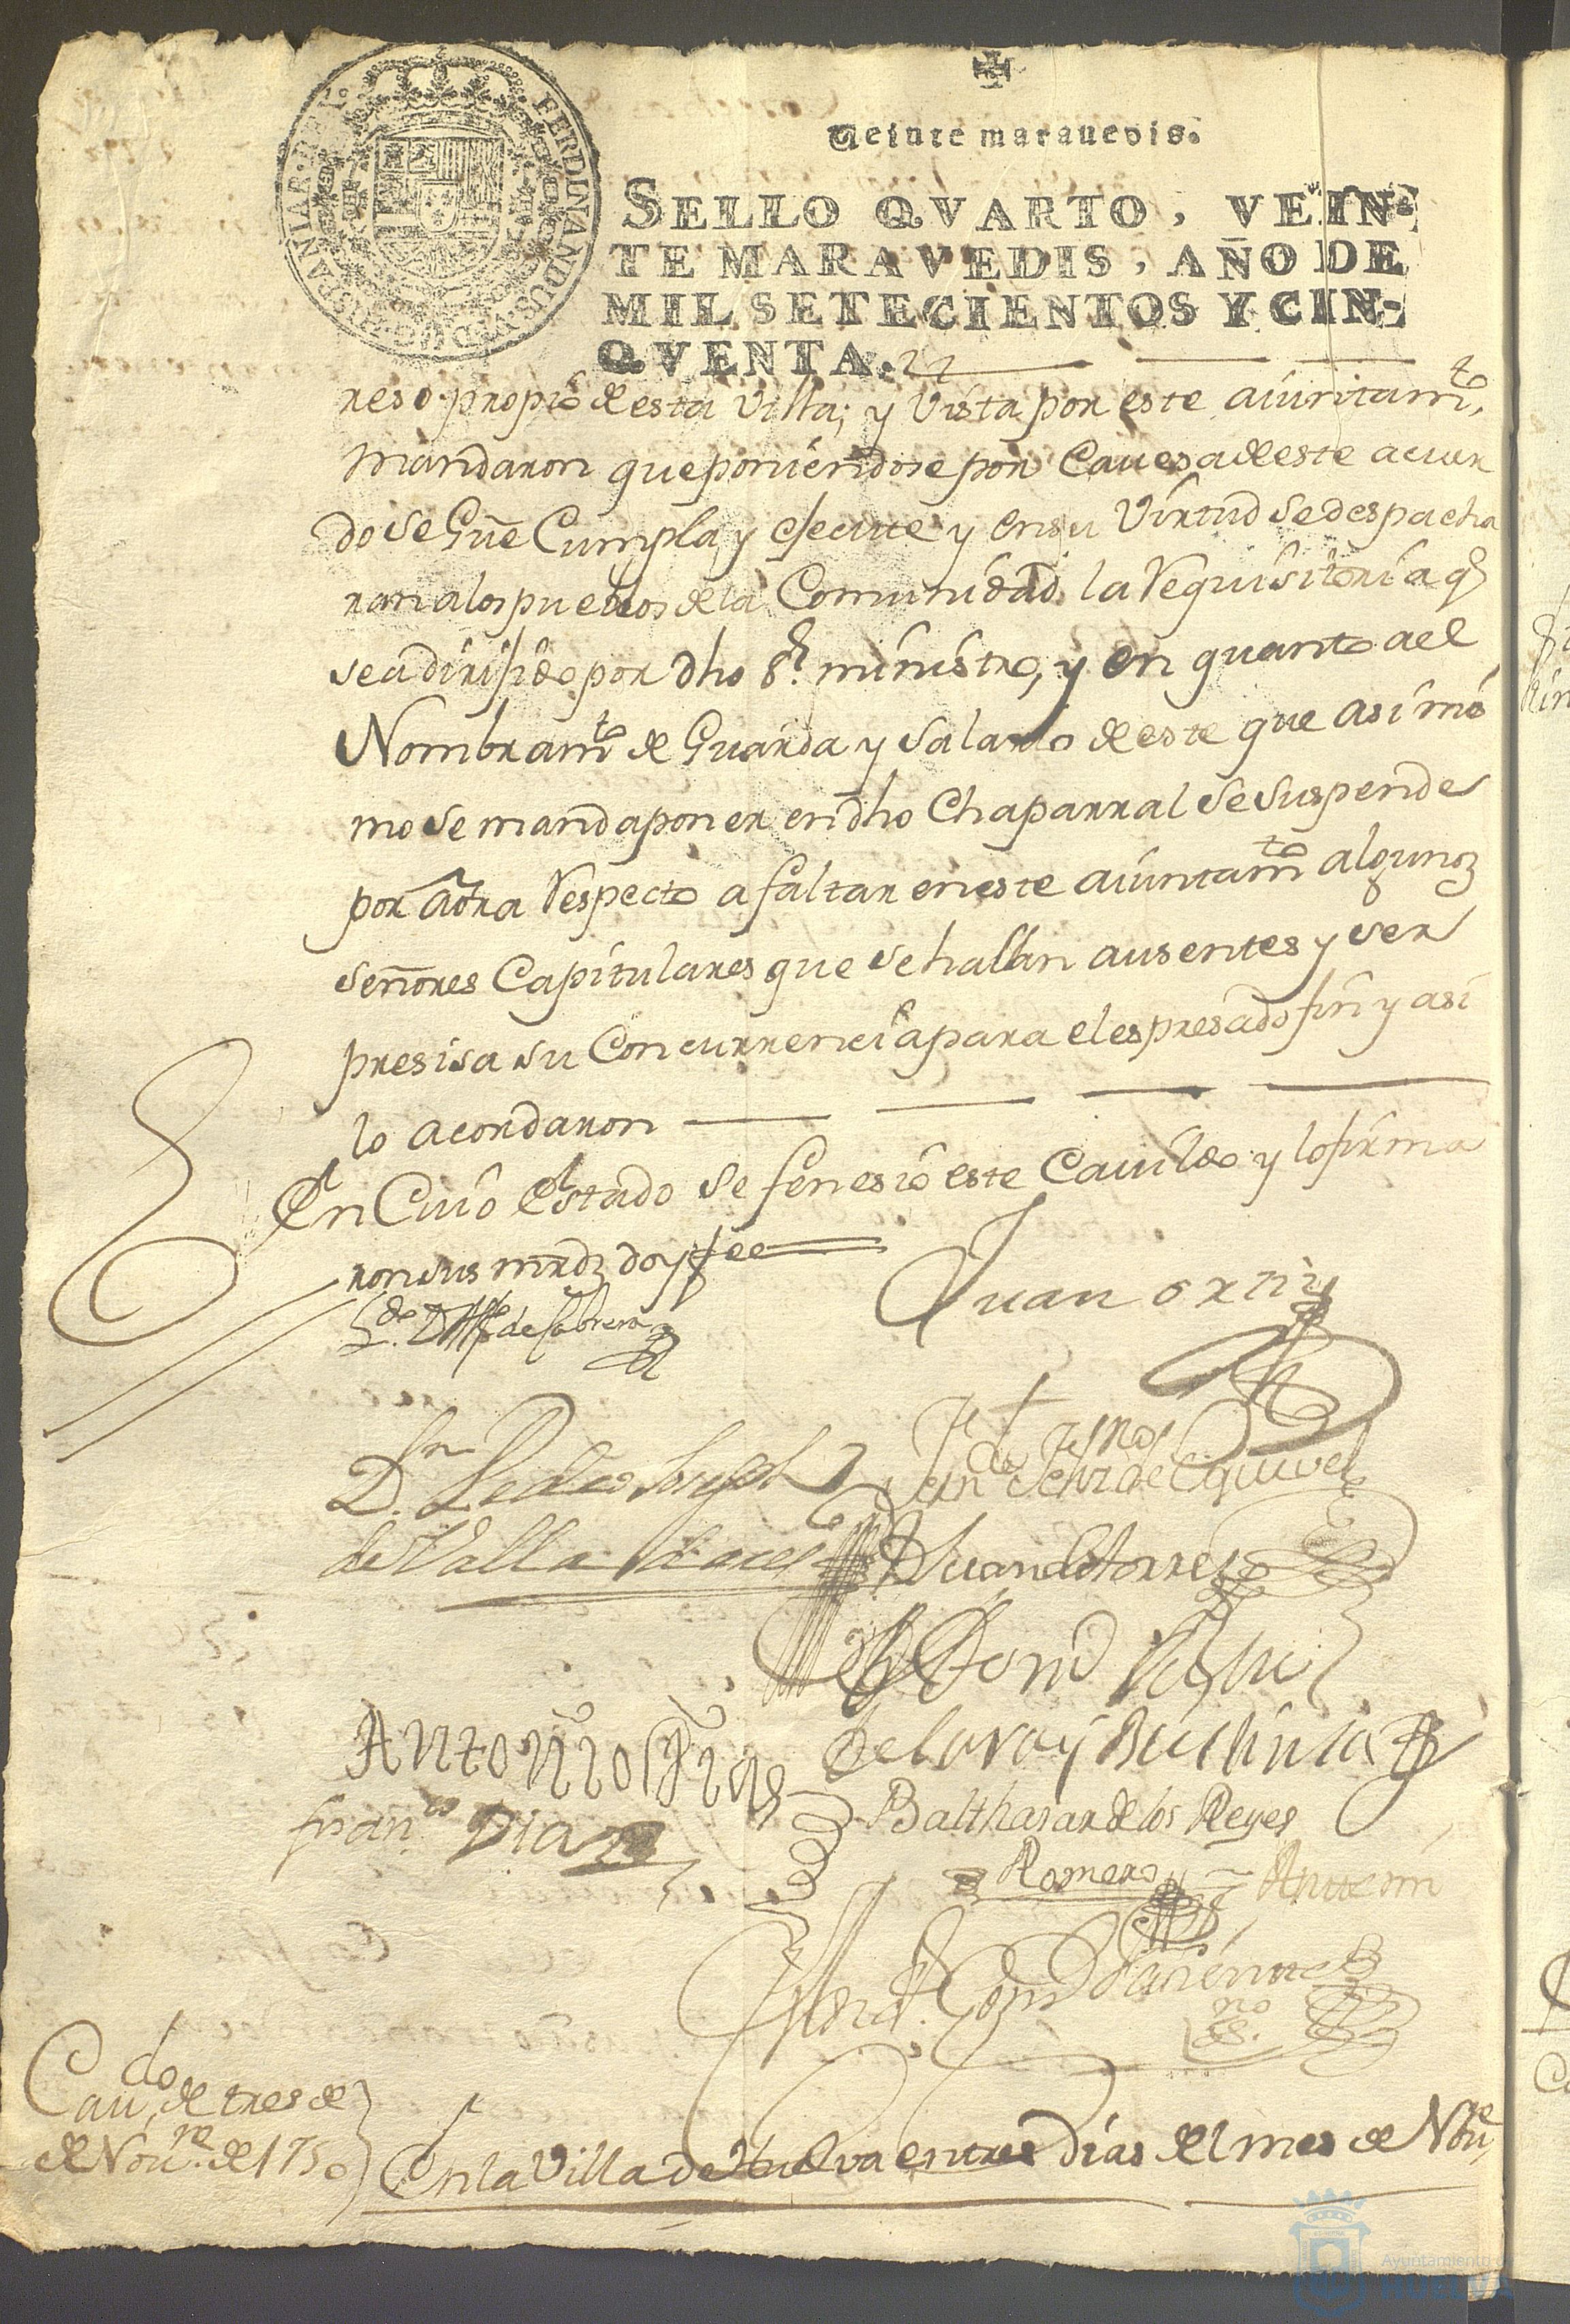 FERDINANDUS VI D G HISPANIAR REX
Veinte maravedis.
SELLO QVARTO, VEIN-
TE MARAVEDIS, AÑO DE
MIL SETECIENTOS Y CIN-
QVENTA.
reso propio de esta Villa; y Vista por este aiuntamto,
mandaron que poniendose por Cavesa de este acuer
do se Gue Cumpla y execute y en su Virtud se despacha
ran a los pueblos de la Comunidad la Requisitoria q
sea dirijido por dho Sr. ministro, y en quanto a el
Nombramto de Guarda y Salario de este que asimo
mo se manda poner en dho Chaparral se Suspende
por aora Respecto a faltar en este aiuntamto algunos
señores Capitulares que se hallan ausentes y ser
presisa su Concurrencia para el espresado fin y asi
lo acordaron
En Cuio Estado se fenesio este Cavildo y lo firma
ron sus mrds doy fee
Ldo. D Alfo de Cabrera
Juan ortiz
Dn. Pedro Joseph
de Valladares
de Esquivel
D Juan de torres
de lara y
Antonio
Franco Diaz
Balthasar de los Reyes
Romero
Ante mi
esno.
Cavdo. de tres de
de Novre. de 1750
En la Villa de Huelva en tres Dias del mes de Novre
Ayuntamiento de
HUELVA